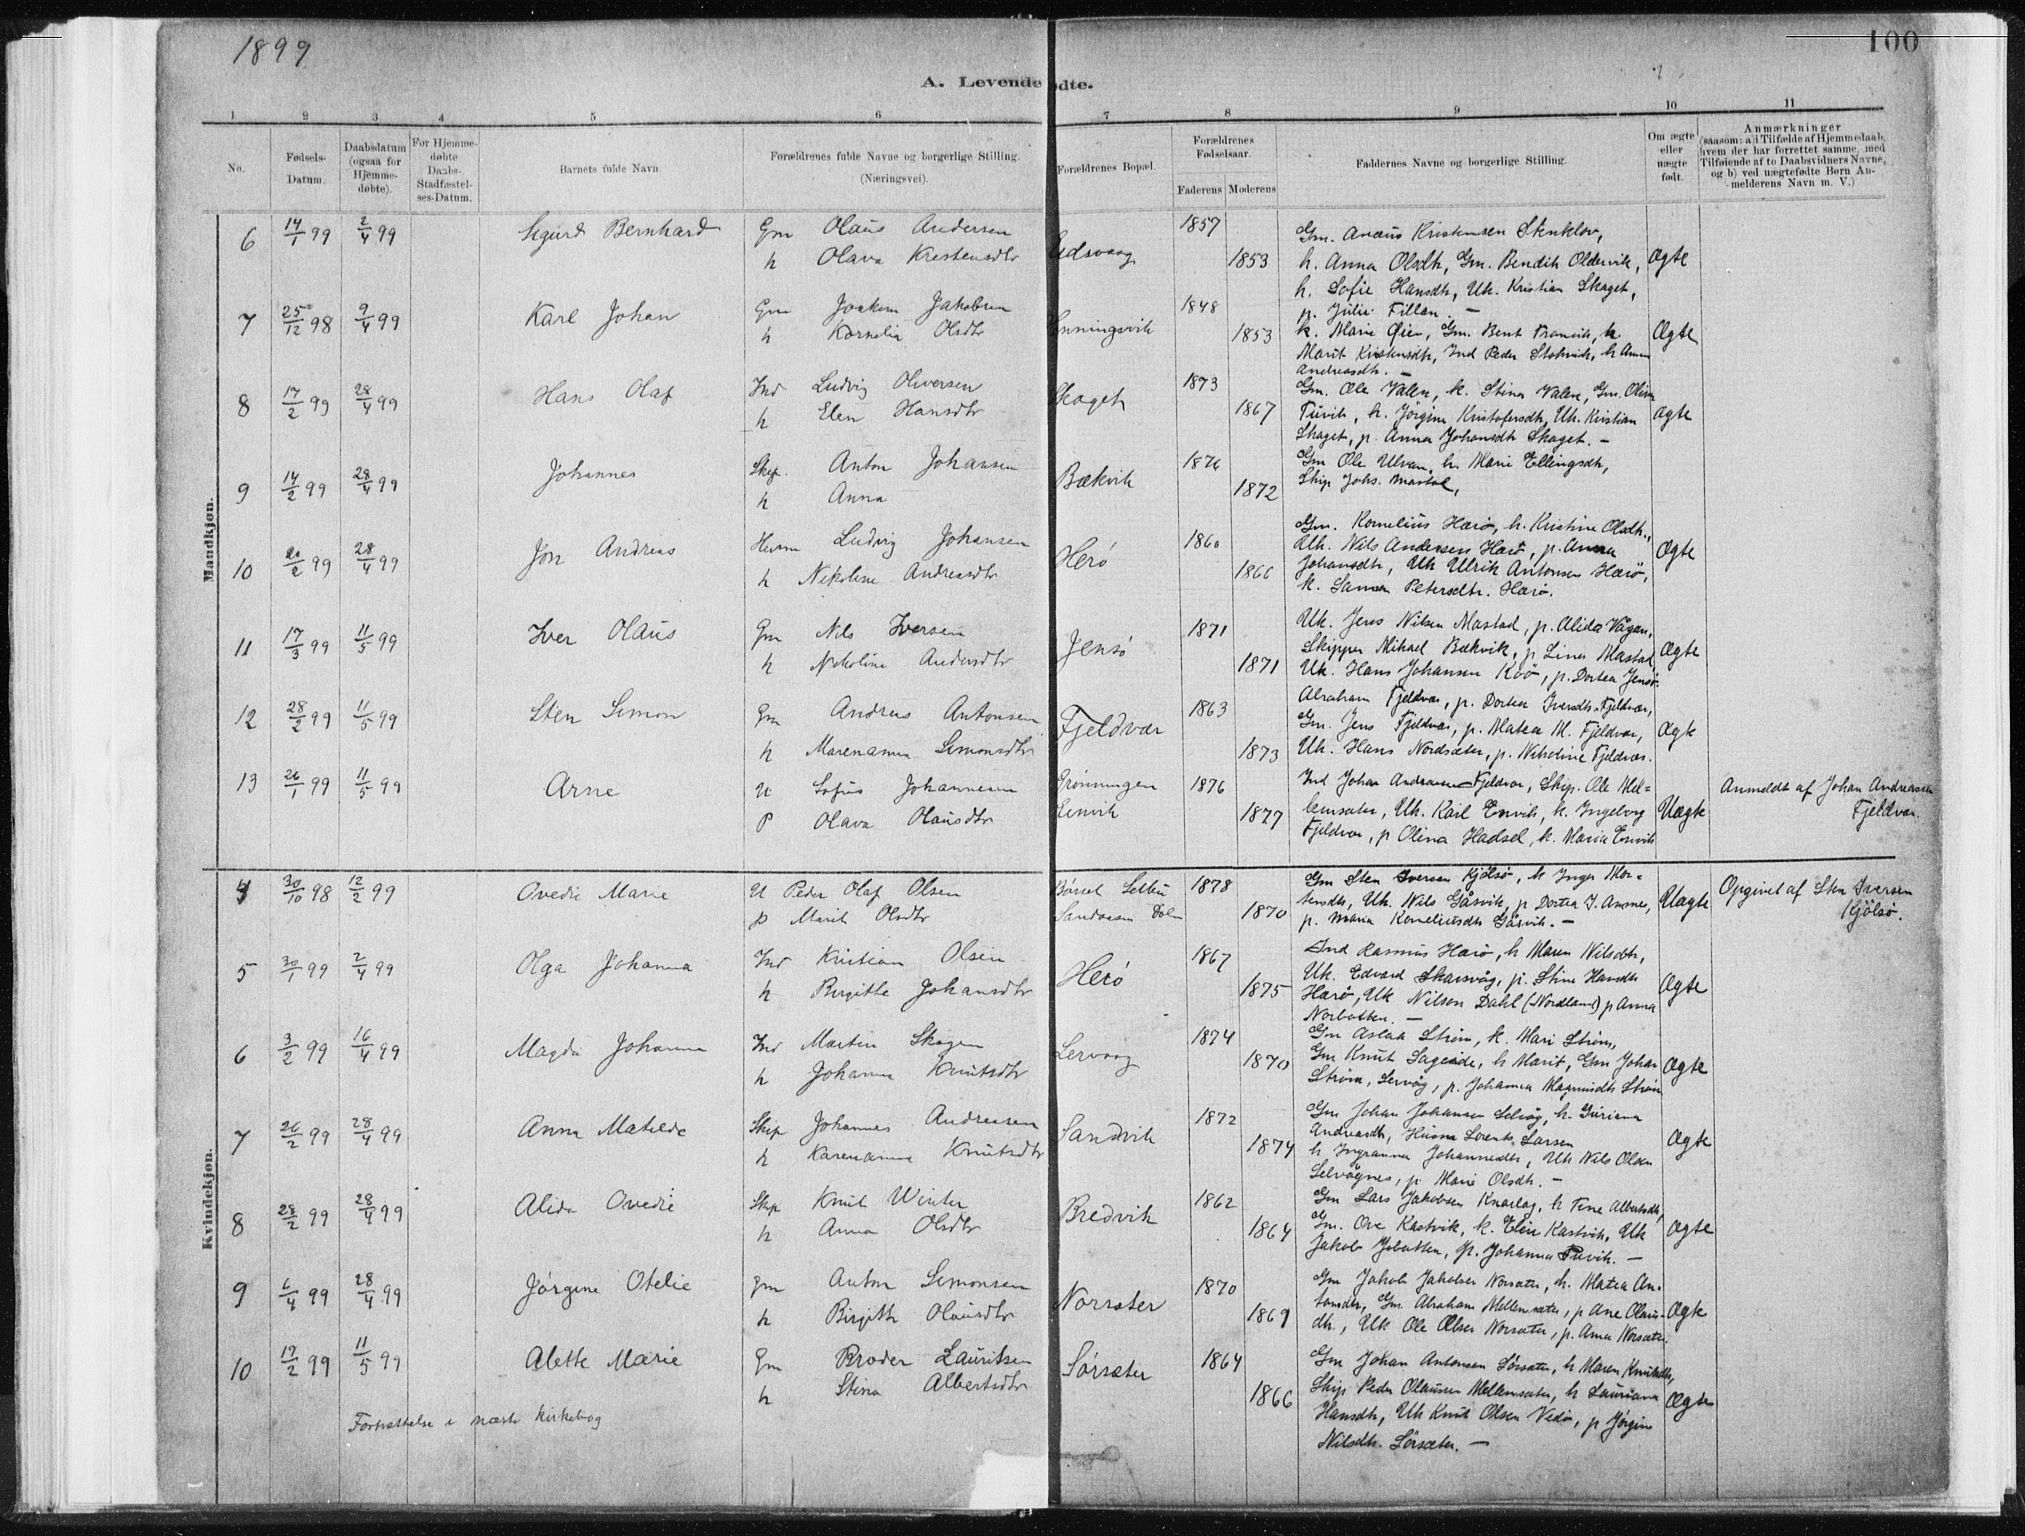 1899
100
A. Levendefødte.
1 2 3 4 5 6 7 8 9 10 11
No.
Fødsels-Datum.
Daabsdatum (ogsaa for Hjemmedøbte).
For Hjemmedøbte Daabs-Stadfæstelses-Datum.
Barnets fulde Navn.
Forældrenes fulde Navne og borgerlige Stilling. (Næringsvei).
Forældrenes Bopæl.
Forældrenes Fødselsaar.
Faderens Moderens
Faddernes Navne og borgerlige Stilling.
Om ægte eller uægte født.
Anmærkninger (saasom: a) i Tilfælde af Hjemmedaab, hvem der har forrettet samme, med Tilføiende af to Daabsvidners Navne, og b) ved uægtefødte Børn Anmelderens Navn m. V.)
Mandkjøn.
6 14/1 99 2/4 99 Sigurd Bernhard Gm Olaus Andersen Eidsvaag 1857
h Olava Krestensdtr 1853
Gm. Kristensen Stenklov,
h. Anna Olsdtr, Gm. Bendik Oldervik, Ægte
h. Sofie Hansdtr, Uk. Kristian Skaget,
p. Julie Fillan. —
7 25/12 98 9/4 99 Karl Johan Gm Joakim Jakobsen Henningsvik 1848
h Kornelia Olsdtr 1853
k. Marie Øien, Gm. Bent h Ægte
Marit Kristensdtr, Ind Peder h Anna
Andreasdtr. —
8 17/2 99 28/4 99 Hans Olaf Ind Ludvig Oliversen Skaget 1873
h Elen Hansdtr 1867
Gm. Ole Valen, k. Stina Valen, Gm. Oliver
Tuvik, h. Jørgine Kristofersdtr, Uk. Kristian Ægte
Skaget, p. Anna Johansdtr Skaget. —
9 14/2 99 28/4 99 Johannes Skip. Anton Johansen Bækvik 1876
h Anna 1872
Gm Ole Ulvan, h. Marie Ellingsdtr,
Skip Johs. Mastad,
10 20/2 99 28/4 99 Jon Andreas Husm Ludvig Johansen Herö 1860
h Nikoline Andreasdtr 1866
Gm. Kornelius Hærö, h. Kristine Olsdtr.,
Uk. Nils Andersen Hærö, p. Anna Ægte
Johansdtr, Uk Ulrik Antonsen Hærö,
k. Sanna Petersdtr. Hærö.
11 17/3 99 11/5 99 Iver Olaus Gm Nils Iversen Jensö 1871
h Nikoline Andersdtr 1871
Uk. Jens Nilsen Mastad, p. Alida Vågan,
Skipper Mikael Bækvik, p. Lina Mastad, Ægte
Uk. Hans Johansen Kåö, p. Dortea Jensö.
12 28/2 99 11/5 99 Sten Simon Gm Andreas Antonsen Fjeldvær 1863
h Marenanna Simonsdtr 1873
Abraham Fjeldvær, p. Dortea Iversdtr. Fjeldvær,
Gm. Jens Fjeldvær, p. Matea M. Fjeldvær, Ægte
Uk. Hans Nordsæter, p. Nikoline Fjeldvær.
13 26/1 99 11/5 99 Arne U Sofus Johannesen Grønningen 1876
P Olava Olausdtr Eenvik 1877
Ind Johan Andreasen Fjeldvær, Skip. Ole Mel-
lemsæter, Uk. Karl Envik, k. Ingeborg Uægte
Fjeldvær, p Olina Hadsel, k. Maria Envik
Anmeldt af Johan Andreassen
Fjeldvær.
Kvindekjøn.
4 30/10 98 12/2 99 Ovedie Marie U Peder Olaf Olsen Børset Selbu 1878
p Marit Olsdtr Sandaasen 1870
Gm Sten Iversen Kjölsö, h Inger Mor-
tensdtr, Uk. Nils Gåsvik, p. Dortea J. Uægte
p. Maria Korneliusdtr Gåsvik. —
Opgivet af Sten Iversen
Kjölsö.
5 30/1 99 2/4 99 Olga Johanna Ind Kristian Olsen Herö 1867
h Birgitte Johansdtr 1875
Ind Rasmus Hærö, h Maren Nilsdtr,
Uk. Edvard Skarsvåg, p. Stine Hansdtr Ægte
Hærö, Uk Nilson Dahl (Nordland) p Anna
Norbotten. —
6 3/2 99 16/4 99 Magda Johanna Ind Martin Skagen Lervaag 1874
h Johanna Knutsdtr 1870
Gm Aslak Strøm, k. Mari Strøm,
Gm Knut Sageide, h Marit, Gm Johan Ægte
Strøm, Lervåg, p. Johanna Magnusdtr Strøm
7 26/2 99 28/4 99 Anna Matilde Skip Johannes Andreasen Sandvik 1872
h Karenanna Knutsdtr 1874
Gm Johan Johansen Selvåg, h. Guriana
Andreasdtr, Husm Lorents Larsen Ægte
h Ingranna Johannesdtr, Uk Nils Olsen
Selvågnes, p Marie Olsdtr. —
8 28/2 99 28/4 99 Alida Ovedie Skip Knut Winter Bredvik 1862
h Anna Olsdtr 1864
Gm Lars Jakobsen Knarlag, h Tine Albertsdtr,
Gm. Ove Kastvik, k. Elen Kastvik, Uk Ægte
Jakob Jobotten, p. Johanna Tuvik. —
9 6/4 99 28/4 99 Jørgine Otelie Gm Anton Simonsen Norsæter 1870
h Birgitte Olausdtr 1869
Gm Jakob Jakobsen Norsæter, h. Matea An-
tonsdtr, Gm Abraham Mellemsæter, p Ane Olaus- Ægte
dtr., Uk Ole Olsen Norsæter, p. Anna Norsæter.
10 19/2 99 11/5 99 Alette Marie Gm Broder Lauritsen Sørsæter 1864
h Stina Albertsdtr 1866
Gm Johan Antonsen Sørsæter, h Maren Knutsdtr,
Skip Peder Olausen Mellemsæter, h Lauriana Ægte
Hansdtr, Uk Knut Olsen Vedö, p Jørgine
Nilsdtr. Sørsæter. —
Fortsættelse i næste kirkebog